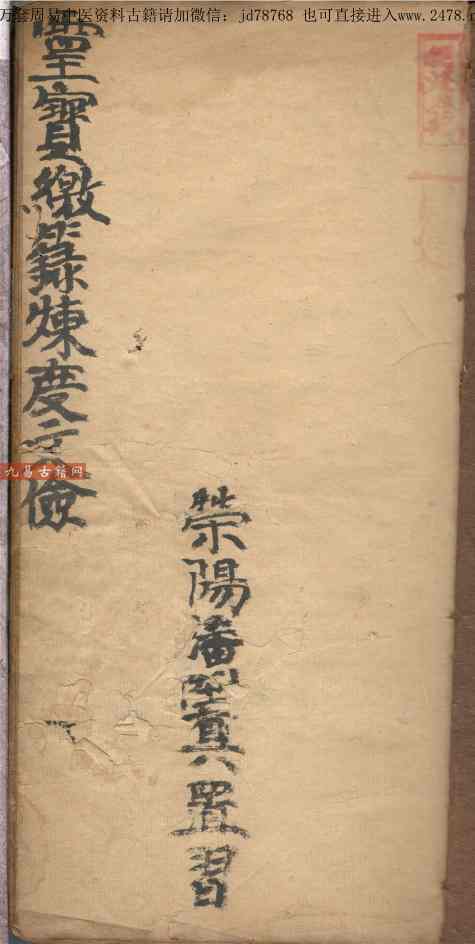 万套周易中医资料古籍请加微信：jd78768 也可直接进入www.2478.n
靈寶繳籙煉度文儉
九易古籍网
滎陽潘 真置習